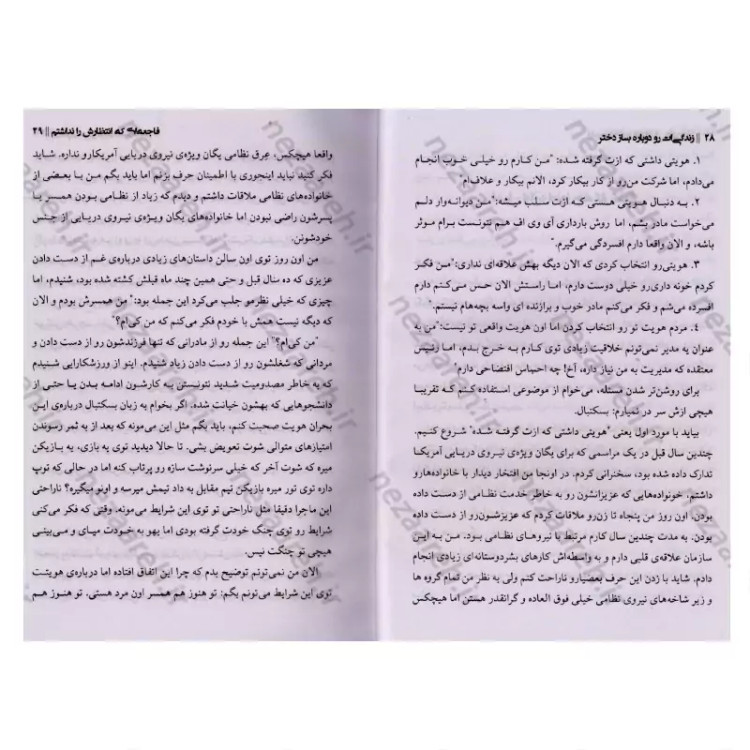 ۲۸ || زندگی‌ات رو دوباره بساز دختر
۱. هویتی داشتی که ازت گرفته شده: "من کارم رو خیلی خوب انجام
می‌دادم، اما شرکت من‌رو از کار بیکار کرد، الانم بیکار و علاف‌ام"
۲. به دنبال هویتی هستی که ازت سلب میشه: "من دیوانه‌وار دلم
می‌خواست مادر بشم، اما روش بارداری آی وی اف هم نتونست برام موثر
باشه، و الان واقعا دارم افسردگی می‌گیرم."
۳. هویتی‌رو انتخاب کردی که الان دیگه بهش علاقه‌ای نداری: "من فکر
کردم خونه داری‌رو خیلی دوست دارم، اما راستش الان حس می‌کنم دارم
افسرده می‌شم و فکر می‌کنم مادر خوب و برازنده ای واسه بچه‌هام نیستم."
۴. مردم هویت تو رو انتخاب کردن اما اون هویت واقعی تو نیست: "من به
عنوان یه مدیر نمی‌تونم خلاقیت زیادی توی کارم به خرج بدم، اما رئیس
معتقده که مدیریت به من نیاز داره، آخ! چه احساس افتضاحی دارم"
برای روشن‌تر شدن مسئله، می‌خوام از موضوعی استفاده کنم که تقریبا
هیچی ازش سر در نمیارم: بسکتبال.
بیاید با مورد اول یعنی "هویتی داشتی که ازت گرفته شده" شروع کنیم.
چندین سال قبل در یک مراسمی که برای یگان ویژه‌ی نیروی دریایی آمریکا
تدارک داده شده بود، سخنرانی کردم. در اونجا من افتخار دیدار با خانواده‌هارو
داشتم، خونواده‌هایی که عزیزانشون رو به خاطر خدمت نظامی از دست داده
بودن. اون روز من پنجاه تا زن‌رو ملاقات کردم که عزیزشون‌رو از دست داده
بودن. به مدت چندین سال کارم مرتبط با نیروهای نظامی بود. من به این
سازمان علاقه‌ی قلبی دارم و به واسطه‌اش کارهای بشردوستانه‌ای زیادی انجام
دادم. شاید با زدن این حرف بعضیارو ناراحت کنم ولی به نظر من تمام گروه ها
و زیر شاخه‌های نیروی نظامی خیلی فوق العاده و گرانقدر هستن اما هیچکس
فاجعه‌ای که انتظارش را نداشتم || ۲۹
واقعا هیچکس، عِرق نظامی یگان ویژه‌ی نیروی دریایی آمریکارو نداره. شاید
فکر کنید نباید اینجوری با اطمینان حرف بزنم اما باید بگم من با بعضی از
خانواده‌های نظامی ملاقات داشتم و دیدم که زیاد از نظامی بودن همسر یا
پسرشون راضی نبودن اما خانواده‌های یگان ویژه‌ی نیروی دریایی از جنس
خودشونن.
من اون روز توی اون سالن داستان‌های زیادی درباره‌ی غم از دست دادن
عزیزی که ده سال قبل و حتی همین چند ماه قبلش کشته شده بود، شنیدم، اما
چیزی که خیلی نظرمو جلب می‌کرد این جمله بود: "من همسرش بودم و الان
که دیگه نیست همش با خودم فکر می‌کنم که من کی‌ام؟"
"من کی‌ام؟" این جمله رو از مادرانی که تنها فرزندشون رو از دست دادن و
مردانی که شغلشون رو از دست دادن زیاد شنیدم. اینو از ورزشکارایی شنیدم
که به خاطر مصدومیت شدید نتونستن به کارشون ادامه بدن یا حتی از
دانشجوهایی که بهشون خیانت شده. اگر بخوام به زبان بسکتبال درباره‌ی این
بحران هویت صحبت کنم، باید بگم مثل این می‌مونه که بعد از به ثمر رسوندن
امتیازهای متوالی شوت تعویض بشی. تا حالا دیدید توی یه بازی، یه بازیکن
میره که شوت آخر که خیلی سرنوشت سازه رو پرتاب کنه اما در حالی که توپ
داره توی تور میره بازیکن تیم مقابل به داد تیمش میرسه و اونو میگیره؟ ناراحتی
این ماجرا دقیقا مثل ناراحتی تو توی این شرایط می‌مونه. وقتی که فکر می‌کنی
شرایط رو توی چنگ خودت گرفته بودی اما یهو به خودت میای و می‌بینی
هیچی تو چنگت نیس.
الان من نمی‌تونم توضیح بدم که چرا این اتفاق افتاده اما درباره‌ی هویتت
توی این شرایط می‌تونم بگم: تو هنوز هم همسر اون مرد هستی. تو هنوز هم
nezaareh.ir